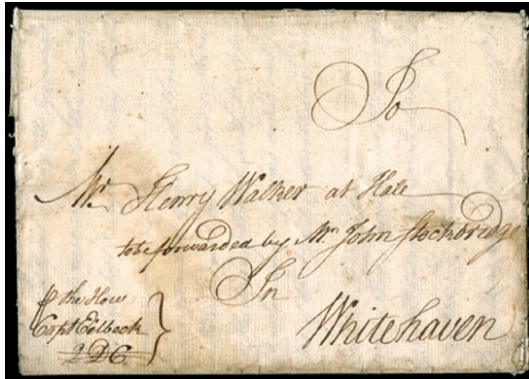 To
Mr. Henry Walker at Hale
to be forwarded by Mr. John Stockbridge
In
Whitehaven
⅌ the How
Capt Eilbeck
2 DC